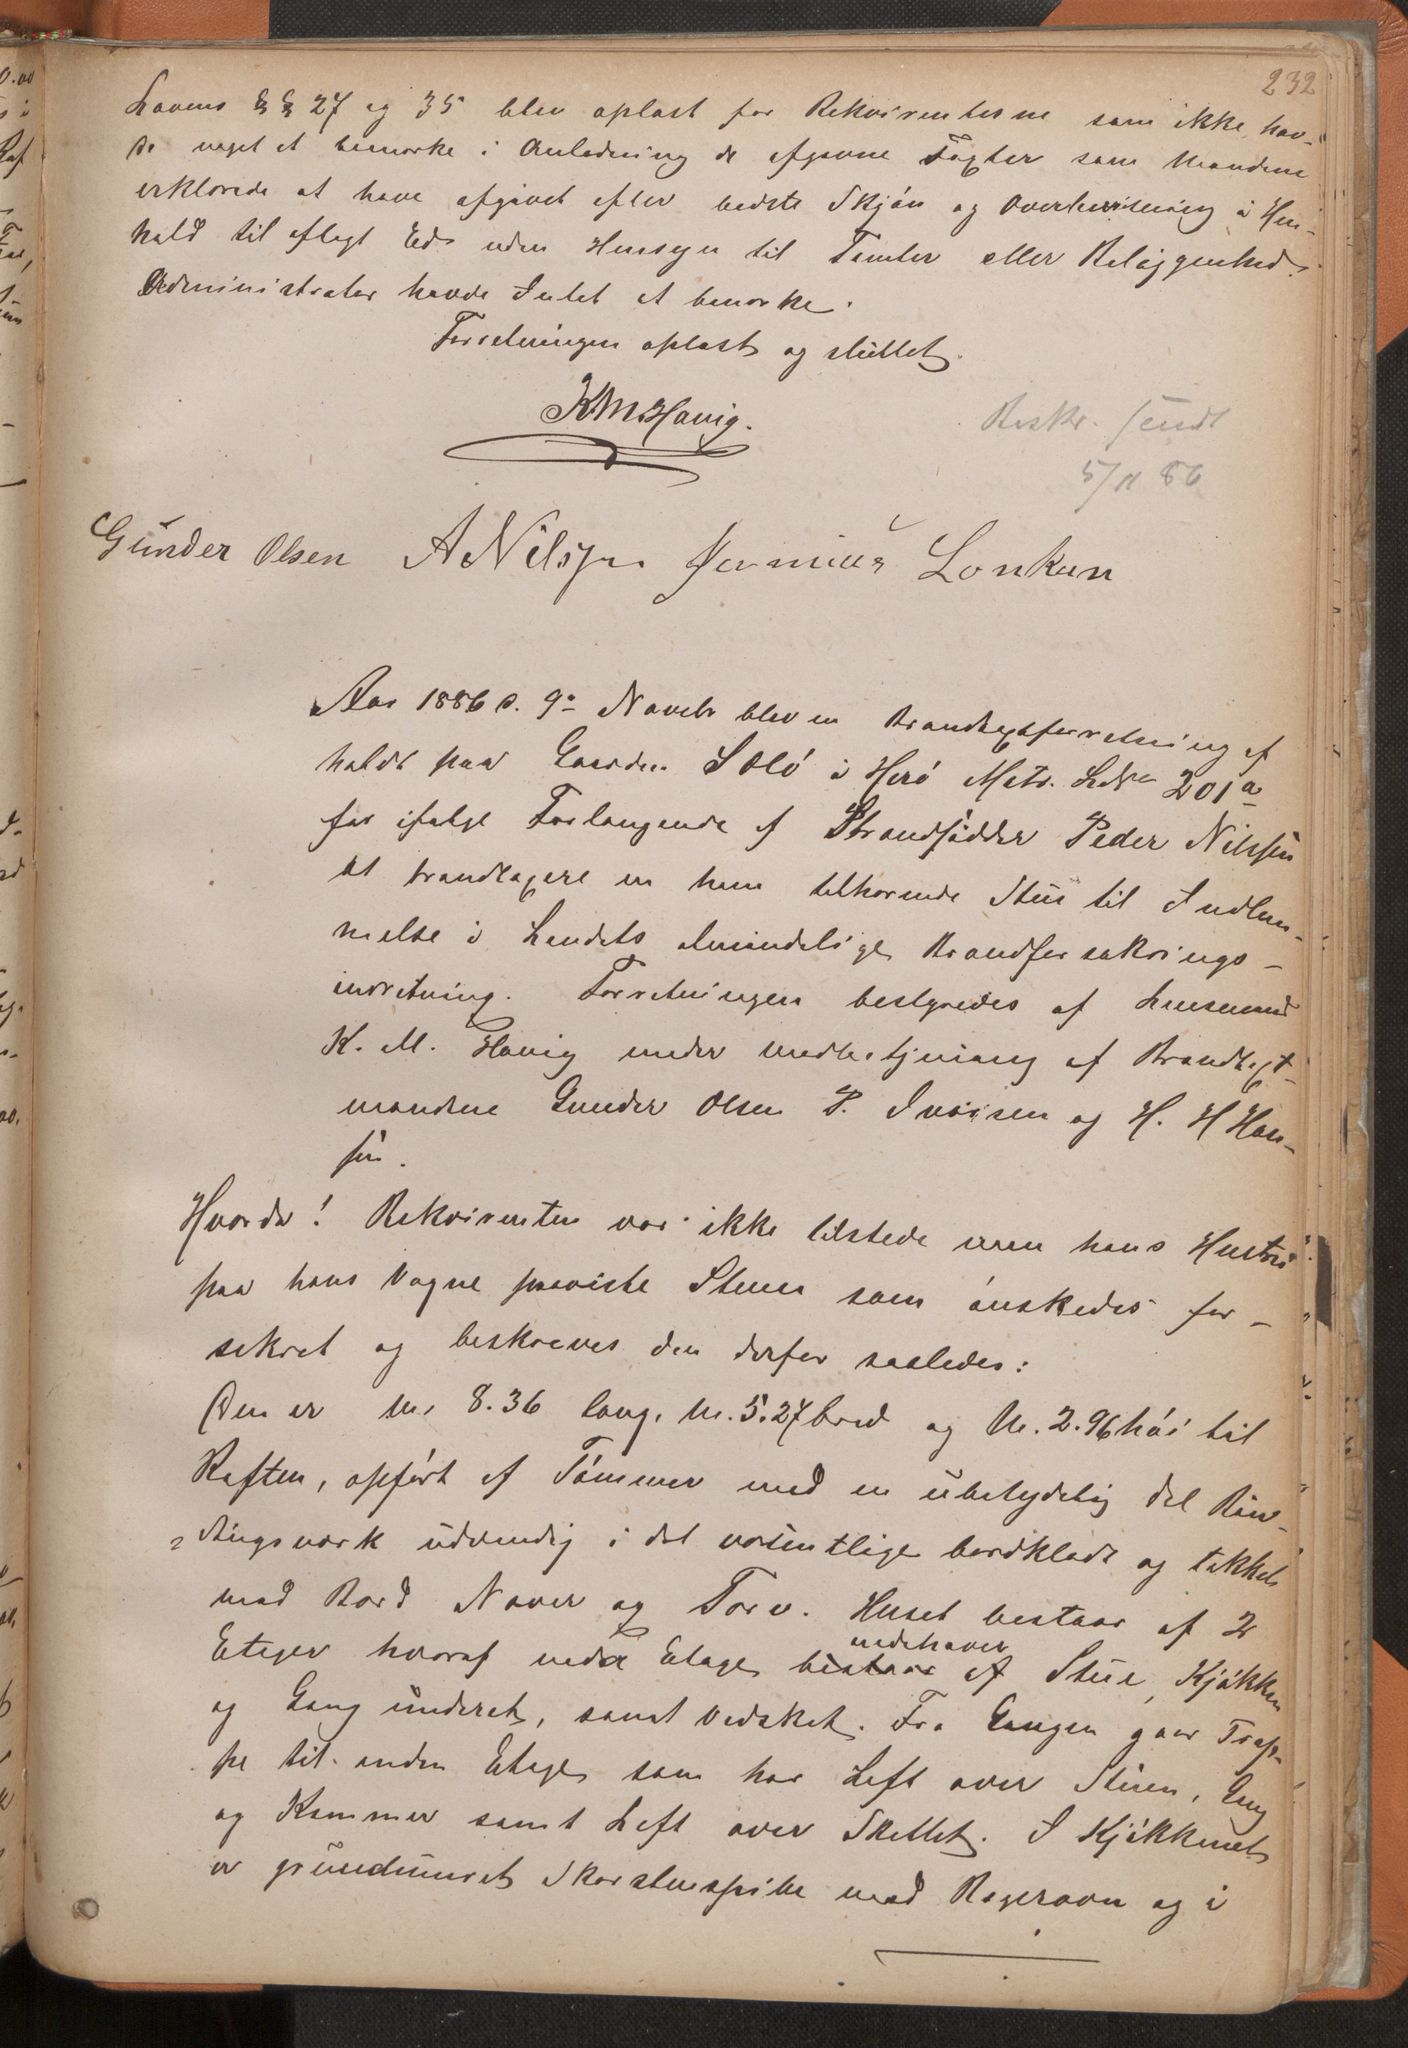 232
Lovens §§ 27 og 35 blev oplæst for Rekvirenterne som ikke hav-
de noget at bemærke i Anledning de afgivne Taxter som Mændene
erklærede at have afgivet efter bedste Skjøn og Overbevisning i Hen-
hold til aflagt Ed uden Hensyn til Tomter eller Beliggenhed.
Administrator havde Intet at bemærke.
Forretningen oplæst og sluttet.
K M Havig.
Beskr. sendt
5/11 86
Gunder Olsen A Nilsen Jermias Lonkan
Aar 1886 d. 9de Novebr blev en Brandtaxtforretning af
holdt paa Gaarden Sølø i Herø Matr. LNr 201a
for ifølge Forlangende af Strandsidder Peder Nilssen
at brandtaxere en ham tilhørende Stue til Indlem-
melse i Landets almindelige Brandforsakrings-
inretning. Forretningen bestyredes af Lensmand
K. M. Havig under medbetjening af Brandtaxt-
mændene Gunder Olsen P. Iversen og H. H Han-
sen.
Hvorda! Rekvirenten var ikke tilstede men hans Hustru
paa hans Vegne paaviste Stuen som ønskedes for-
sikret og beskreves den derfor saaledes:
Den er M. 8.36 lang, M. 5.27 bred og M. 2.96 høi til
Raften, opført af Tømmer med en ubetydelig del Bin-
dingsværk udvendig i det væsentlige bordklædt og tækket
med Bord Næver og Torv. Huset bestaar af 2
Etager hvoraf nedre Etage bestaar af Stue, Kjøkken
indehaver
og Gang underet, samt Vedsket. Fra Gangen gaar Trap-
pe til anden Etage som har Loft over Stuen, Gang
og Kammer samt Loft over Skellet. I Kjøkkenet
er grundmuret Skorstenspibe med Bagerovn og i